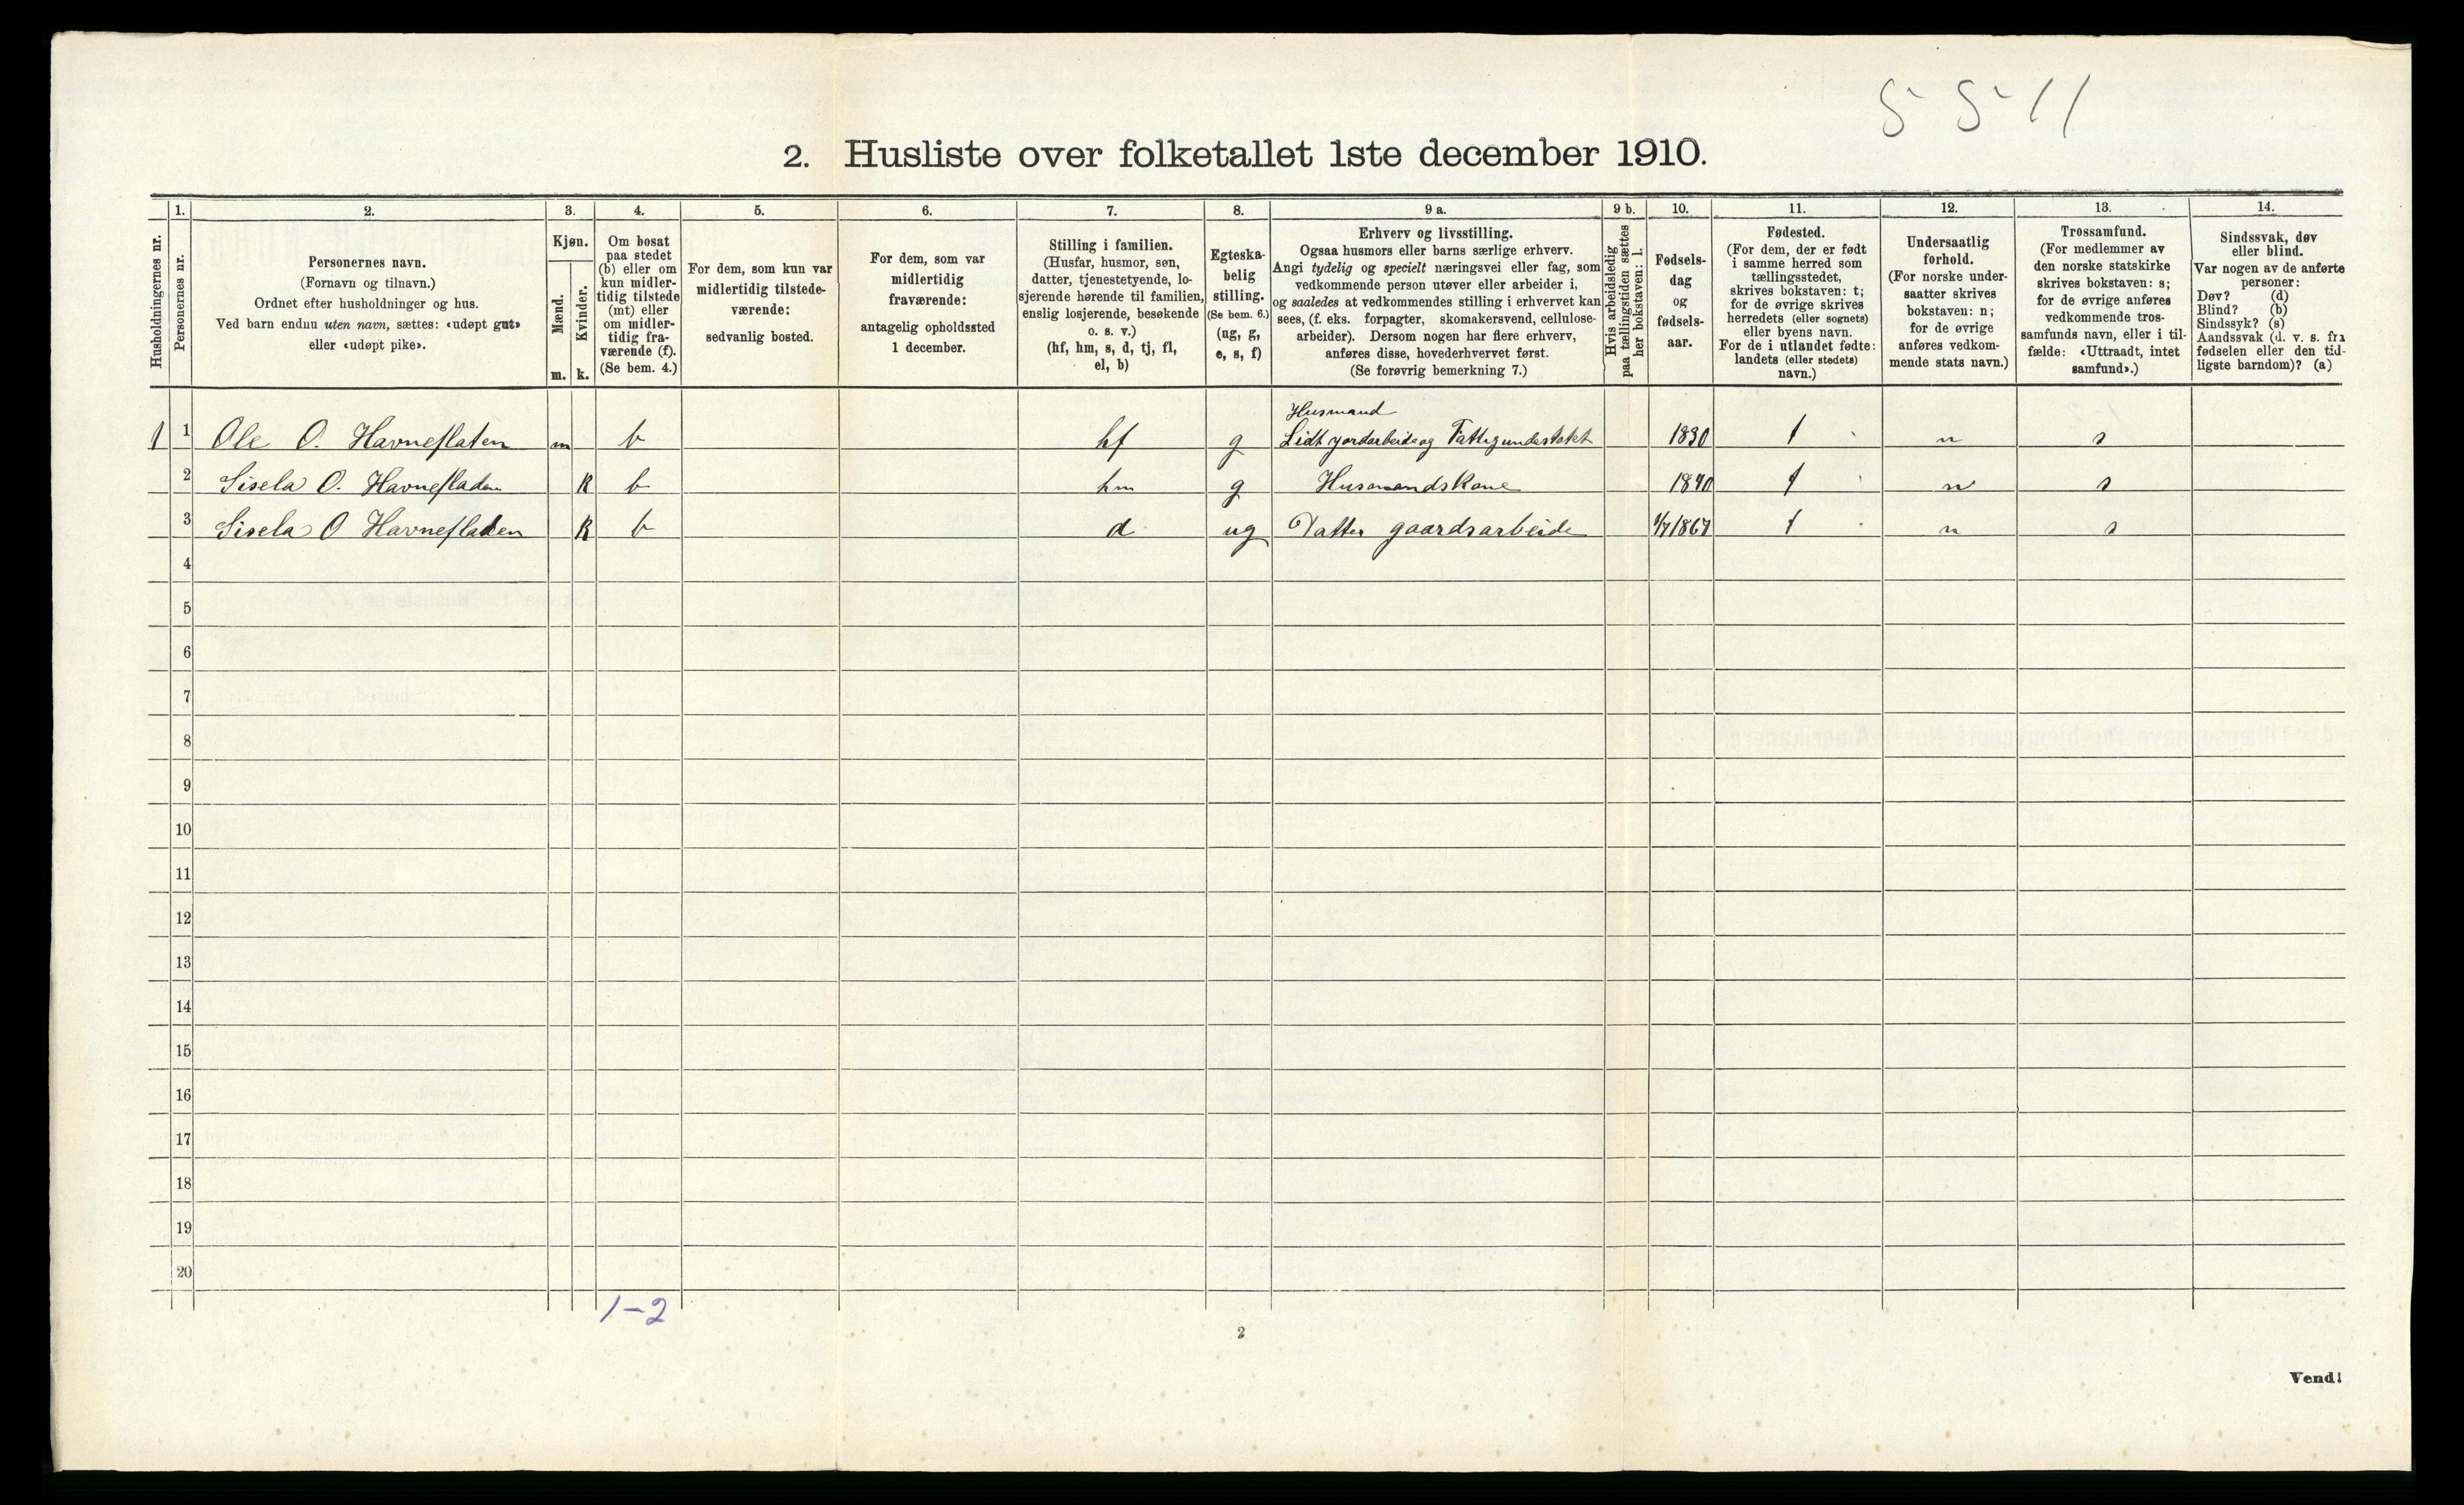 5 5 11
2. Husliste over folketallet 1ste december 1910.
1. 2. 3. 4. 5. 6. 7. 8. 9 a. 9 b. 10. 11. 12. 13. 14.
Husholdningernes nr.
Personernes nr.
Personernes navn.
(Fornavn og tilnavn.)
Ordnet efter husholdninger og hus.
Ved barn endnu uten navn, sættes: «udøpt gut»
eller «udøpt pike».
Kjøn.
Mænd.
Kvinder.
m. k.
Om bosat
paa stedet
(b) eller om
kun midler-
tidig tilstede
(mt) eller
om midler-
tidig fra-
værende (f).
(Se bem. 4.)
For dem, som kun var
midlertidig tilstede-
værende:
sedvanlig bosted.
For dem, som var
midlertidig
fraværende:
antagelig opholdssted
1 december.
Stilling i familien.
(Husfar, husmor, søn,
datter, tjenestetyende, lo-
sjerende hørende til familien,
enslig losjerende, besøkende
o. s. v.)
(hf, hm, s, d, tj, fl,
el, b)
Egteska-
belig
stilling.
(Se bem. 6.)
(ug, g,
e, s, f)
Erhverv og livsstilling.
Ogsaa husmors eller barns særlige erhverv.
Angi tydelig og specielt næringsvei eller fag, som
vedkommende person utøver eller arbeider i,
og saaledes at vedkommendes stilling i erhvervet kan
sees, (f. eks. forpagter, skomakersvend, cellulose-
arbeider). Dersom nogen har flere erhverv,
anføres disse, hovederhvervet først.
(Se forøvrig bemerkning 7.)
Hvis arbeidsledig
paa tællingstiden sættes
her bokstaven: l.
Fødsels-
dag
og
fødsels-
aar.
Fødested.
(For dem, der er født
i samme herred som
tællingsstedet,
skrives bokstaven: t;
for de øvrige skrives
herredets (eller sognets)
eller byens navn.
For de i utlandet fødte:
landets (eller stedets)
navn.)
Undersaatlig
forhold.
(For norske under-
saatter skrives
bokstaven: n;
for de øvrige
anføres vedkom-
mende stats navn.)
Trossamfund.
(For medlemmer av
den norske statskirke
skrives bokstaven: s;
for de øvrige anføres
vedkommende tros-
samfunds navn, eller i til-
fælde: «Uttraadt, intet
samfund».)
Sindssvak, døv
eller blind.
Var nogen av de anførte
personer:
Døv? (d)
Blind? (b)
Sindssyk? (s)
Aandssvak (d. v. s. fra
fødselen eller den tid-
ligste barndom)? (a)
Husmand
1 1 Ole O. Havneflaten m b hf g Lidt jordarbeide og 1830 t n s
2 Sisela O. Havnefladen K b hm g Husmandskone 1840 t n s
3 Sisela O Havnefladen K b d ug Datter gaardsarbeide 1/7 1867 t n s
4
5
6
7
8
9
10
11
12
13
14
15
16
17
18
19
20
1-2
2
Vend!